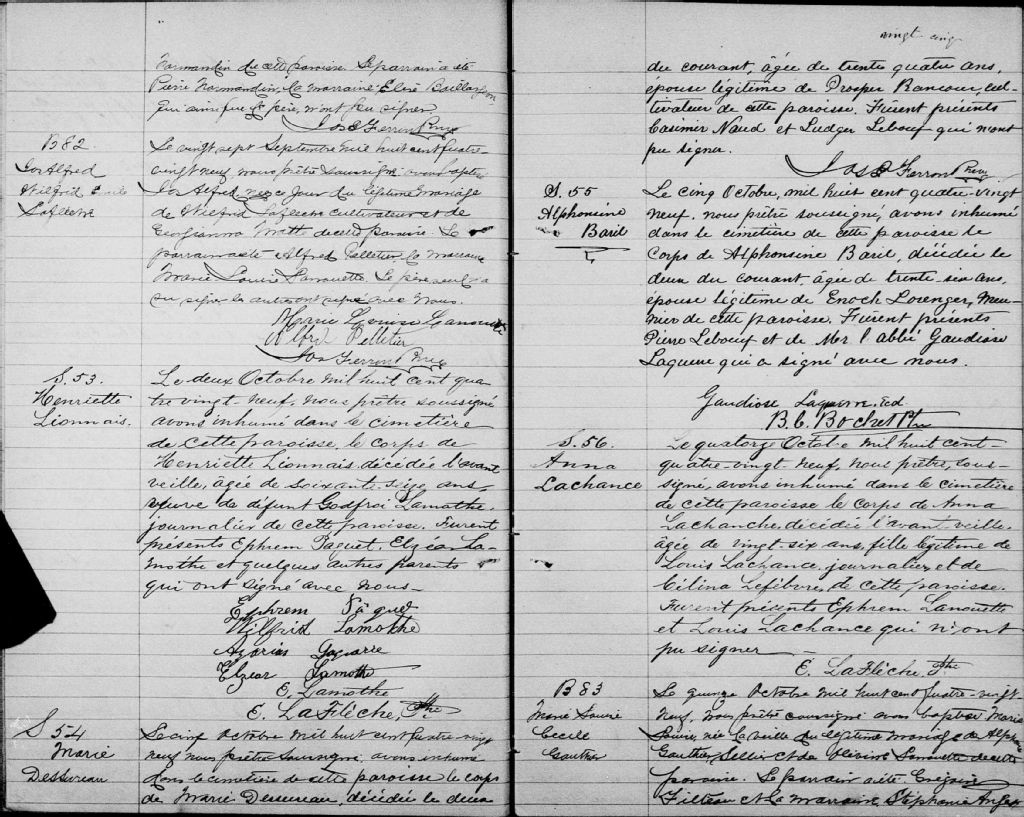 Normandin de cette paroisse. Le parrain a été
Pierre Normandin, la marraine Elise Baillargeon
qui ainsi que le père, n'ont su signer
Jos E Ferron Ptre
B 82
Jos Alfred
Wilfrid
Laflèche
Le vingt sept Septembre mil huit cent quatre-
vingt neuf nous prêtre soussigné avons baptisé
Jos Alfred né ce jour du légitime mariage
de Wilfrid Laflèche cultivateur et de
Georgianna Matte de cette paroisse. Le
parrain a été Alfred Pelletier la marraine
Marie Louise Lanouette. Le père seul n'a
su signer les autres ont signé avec nous.
Marie Louise Lanouette
Alfred Pelletier
Jos Ferron Ptre
S. 53.
Henriette
Lionnais.
Le deux Octobre mil huit cent qua
tre vingt neuf, nous prêtre soussigné
avons inhumé dans le cimetière
de cette paroisse, le corps de
Henriette Lionnais décédée l'avant
veille, âgée de soixante seize ans,
veuve de défunt Godfroi Lamothe,
journalier de cette paroisse. Furent
présents Ephrem Paquet, Elzéar La-
mothe et quelques autres parents
qui ont signé avec nous_
Ephrem Pâquet
Wilfrid Lamothe
Elzear Lamothe
E. Lamothe
E. LaFlèche, Ptre.
S 54
Marie
Dessureau
Le cinq Octobre mil huit cent quatre-vingt
neuf nous prêtre soussigné, avons inhumé
dans le cimetière de cette paroisse le corps
de Marie Dessureau, décédée le deux
vingt cinq
du courant, âgée de trente quatre ans,
épouse légitime de Prosper Rancour, cul-
tivateur de cette paroisse. Furent présents
Casimir Naud et Ludger Lebœuf qui n'ont
pu signer.
Jos E Ferron Ptre
S. 55
Alphonsine
Baril
Le cinq Octobre, mil huit cent quatre-vingt
neuf. nous prêtre soussigné, avons inhumé
dans le cimetière de cette paroisse le
corps de Alphonsine Baril, décédée le
deux du courant, âgée de trente-six ans,
épouse légitime de Enoch Loranger, Meu-
nier de cette paroisse. Furent présents
Pierre Lebœuf et de Mr l'abbé Gaudiose
Laguerre qui a signé avec nous.
Gaudiose Laguerre. Ecd
B. C. Bochet Ptre
S. 56.
Anna
Lachance
Le quatorze Octobre mil huit cent-
quatre-vingt-neuf, nous prêtre, sous-
signé, avons inhumé dans le cimetière
de cette paroisse le corps de Anna
Lachanche, décédée l'avant veille,
âgée de vingt-six ans, fille légitime de
Louis Lachance, journalier, et de
Célina Lefebvre, de cette paroisse.
Furent présents Ephrem Lanouette
et Louis Lachance qui n'ont
pu signer
E. LaFlèche, Ptre.
B 83
Marie Louise
Cecile
Gauthier
Le quinze Octobre mil huit cent quatre-vingt
neuf, nous prêtre soussigné avons baptisé Marie
Louise, née la veille du légitime mariage de Alph
Gauthier, Sellier et de Lanouette de cette
paroisse. Le parrain a été Grégoire
Filteau et la marraine, Stéphanie Anger